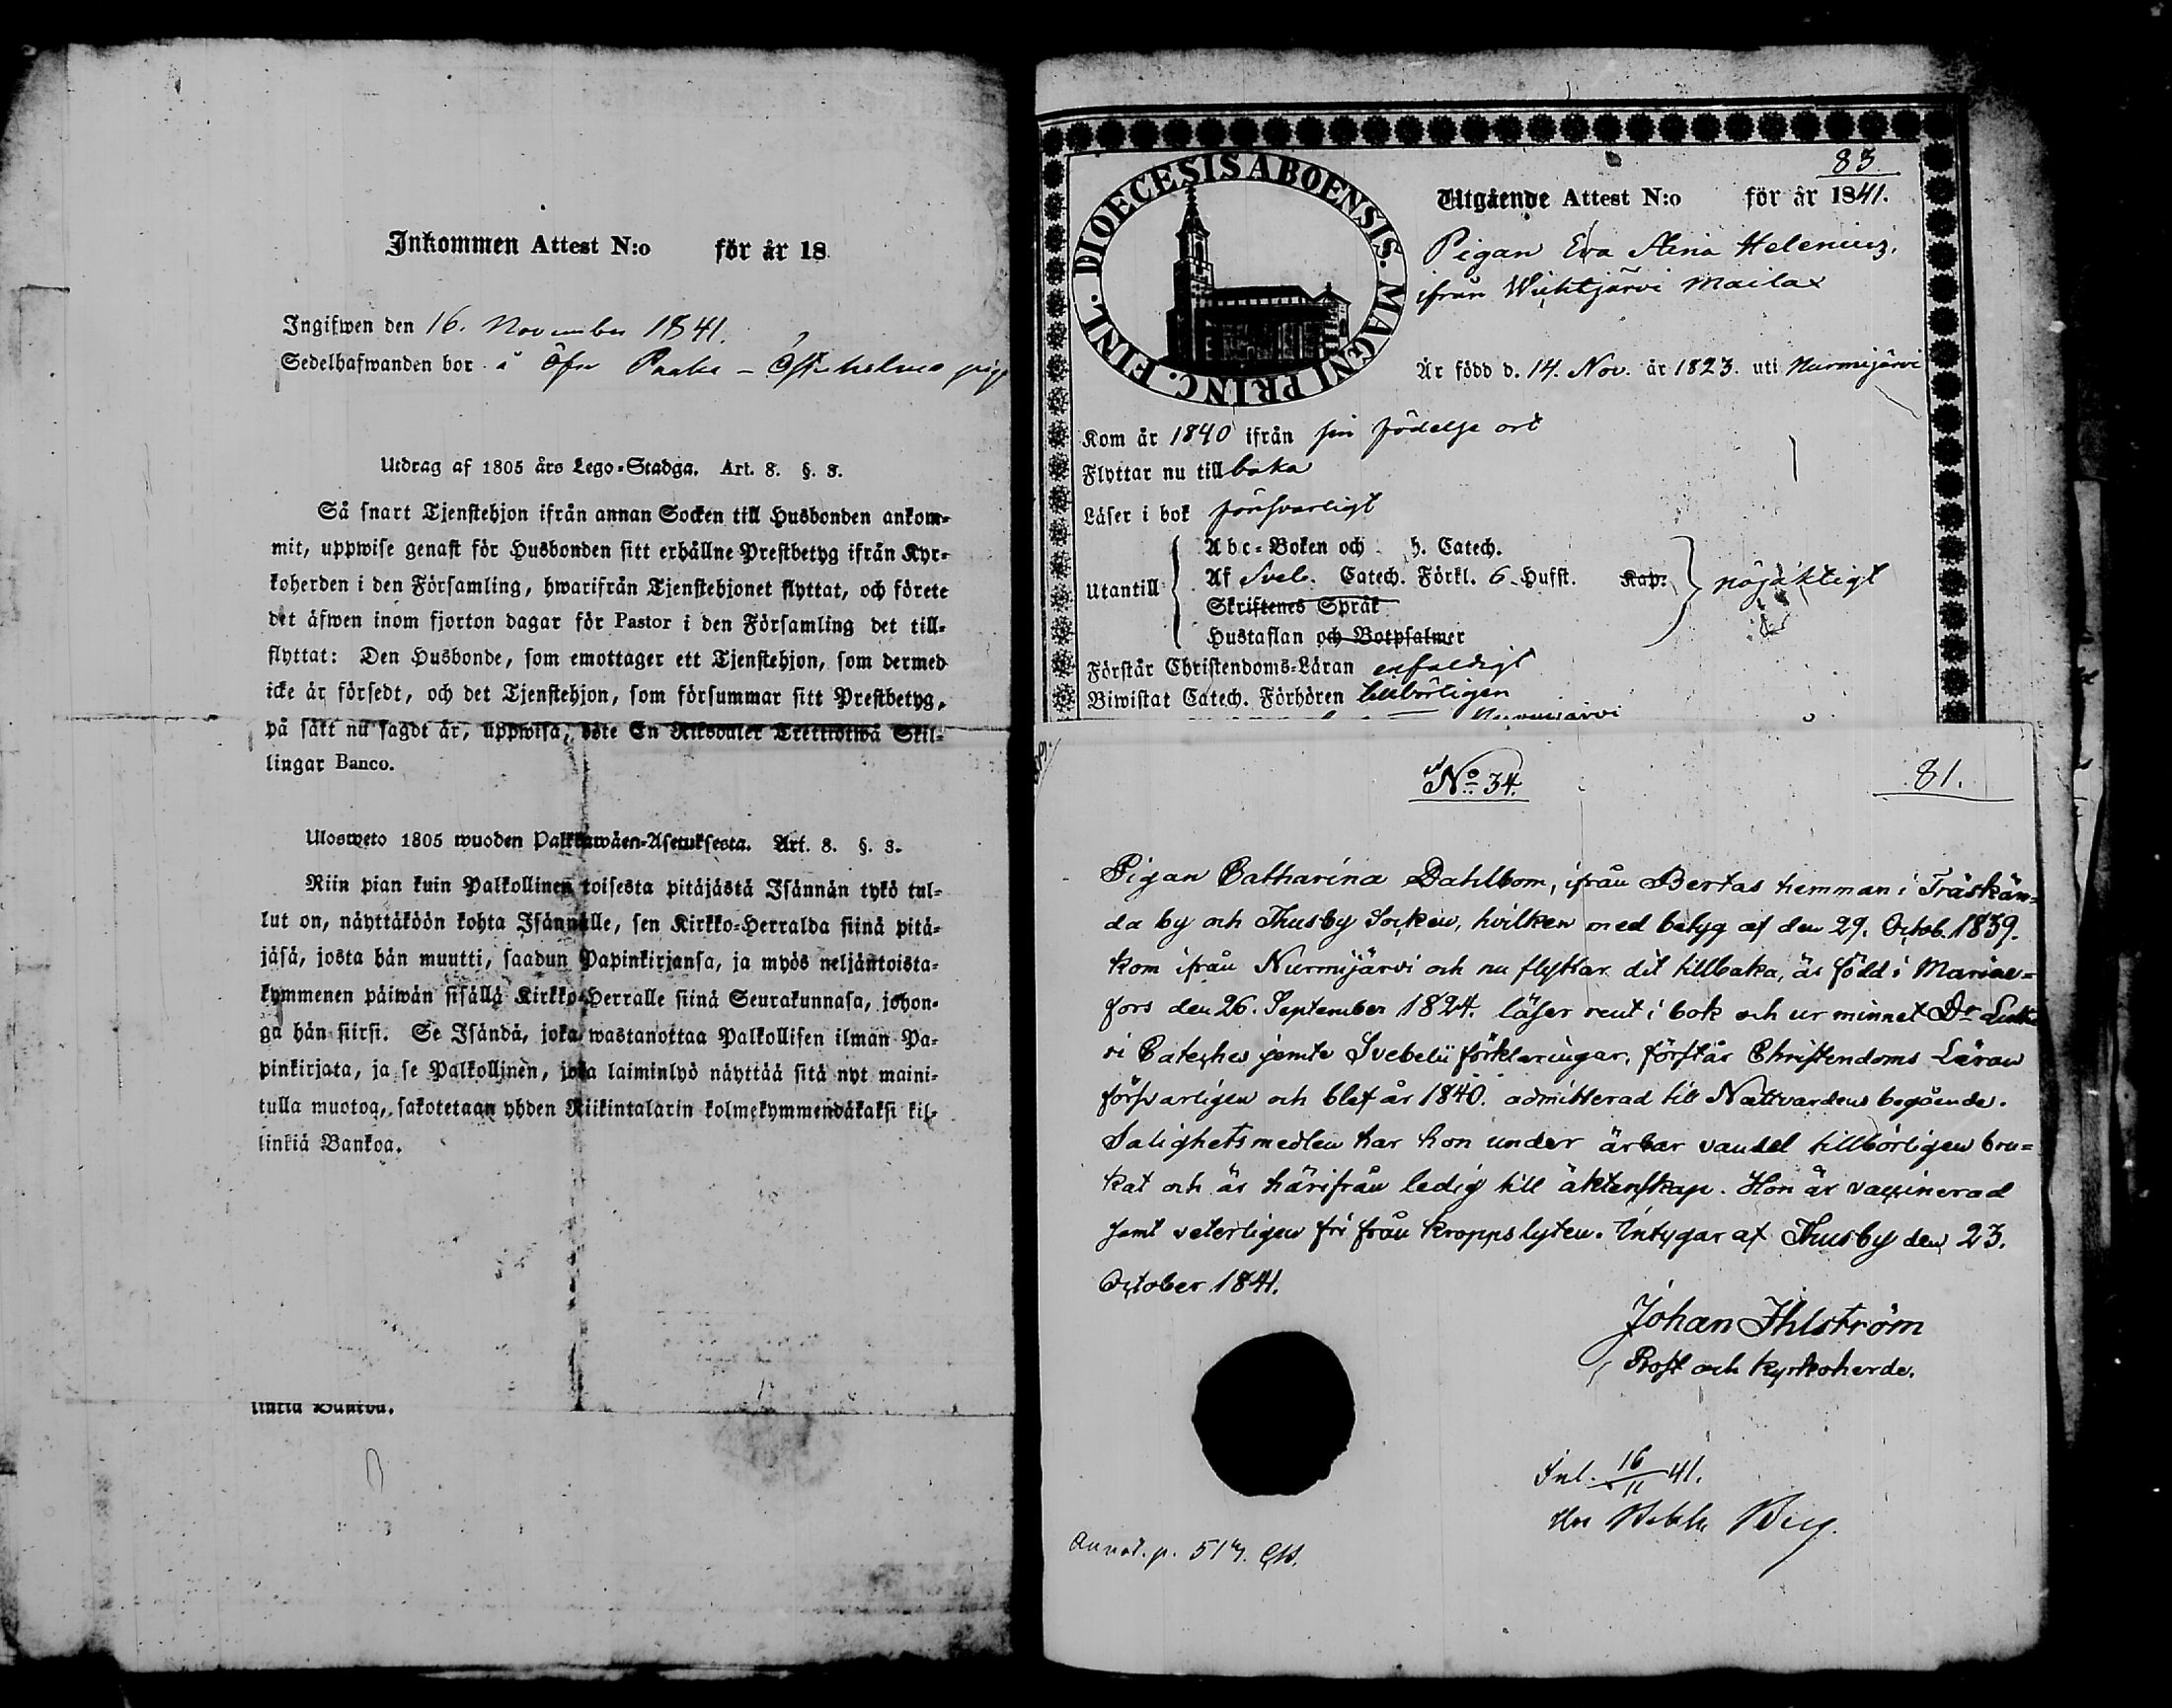 Inkommen Attest N:o för år 18
Ingifwen den 16. November 1841.
Sedelhafwanden bor å Öfre
Utdrag af 1805 års Lego-Stadga. Art. 8. §. 3.
Så snart Tjenstehjon ifrån annan Socken till Husbonden ankom-
mit, uppwise genast för Husbonden sitt erhållne Prestbetyg ifrån Kyr-
koherden i den Församling, hwarifrån Tjenstehjonet flyttat, och förete
det äfwen inom fjorton dagar för Pastor i den Församling det till-
flyttat: Den Husbonde, som emottager ett Tjenstehjon, som dermed
icke är försedt, och det Tjenstehjon, som försummar sitt Prestbetyg,
på sätt nu sagdt är, uppwisa, böte En Riksdaler Trettiotwå Skil-
lingar Banco.
Ulosweto 1805 wuoden Palkkawäen-Asetuksesta. Art. 8. §. 3.
Niin pian kuin Palkollinen toisesta pitäjästä Isännän tykö tul-
lut on, näyttäköön kohta Isännälle, sen Kirkko-Herralda siinä pitä-
jäsä, josta hän muutti, saadun Papinkirjansa, ja myös neljäntoista-
kymmenen päiwän sisällä Kirkko-Herralle siinä Seurakunnasa, johon-
ga hän siirsi. Se Isändä, joka wastanottaa Palkollisen ilman Pa-
pinkirjata, ja se Palkollinen, joka laiminlyö näyttää sitä nyt maini-
tulla muotoa, sakotetaan yhden Riikintalarin kolmekymmendäkaksi kil-
linkiä Bankoa.
linkiä Bankoa.
DIOECESIS ABOENSIS. MAGNI PRINC. FINL.
83
Utgående Attest N:o för år 1841.
Pigan Eva Stina Helenius,
ifrån Wichtjärvi Mailax
Är född d. 14. Nov. år 1823. uti Nurmijärvi
Kom år 1840 ifrån sin födelse ort
Flyttar nu tillbaka
Läser i bok försvarligt
Utantill
Abc-Boken och h. Catech.
Af Sveb. Catech. Förkl. 6 Hufst. Kap:
Skriftenes Språk
Hustaflan och Botpsalmer
nöjaktigt
Förstår Christendoms-Läran enfaldigt
Biwistat Catech. Förhören tillbörligen
Nurmijärvi
No 34. 81.
Pigan Catharina Dahlbom, ifrån Bertas hemman i Träskän-
da by och Thusby Socken, hvilken med betyg af den 29. Octob. 1839.
kom ifrån Nurmijärvi och nu flyttar dit tillbaka, är född i Mariae-
fors den 26. September 1824. läser rent i bok och ur minnet Dr Luthe
ri Cateches jemte Svebelii förklaringar, förstår Christendoms Läran
försvarligen och blef år 1840. admitterad till Nattvardens begående.
Salighetsmedlen har hon under ärbar vandel tillbörligen bru-
kat och är härifrån ledig till äktenskap. Hon är vaccinerad
samt veterligen fri från kroppslyten. Intygar af Thusby den 23.
October 1841.
Johan Ihlström
Prost och Kyrkoherde.
Inl. 16/11 41.
Annot. p. 517.